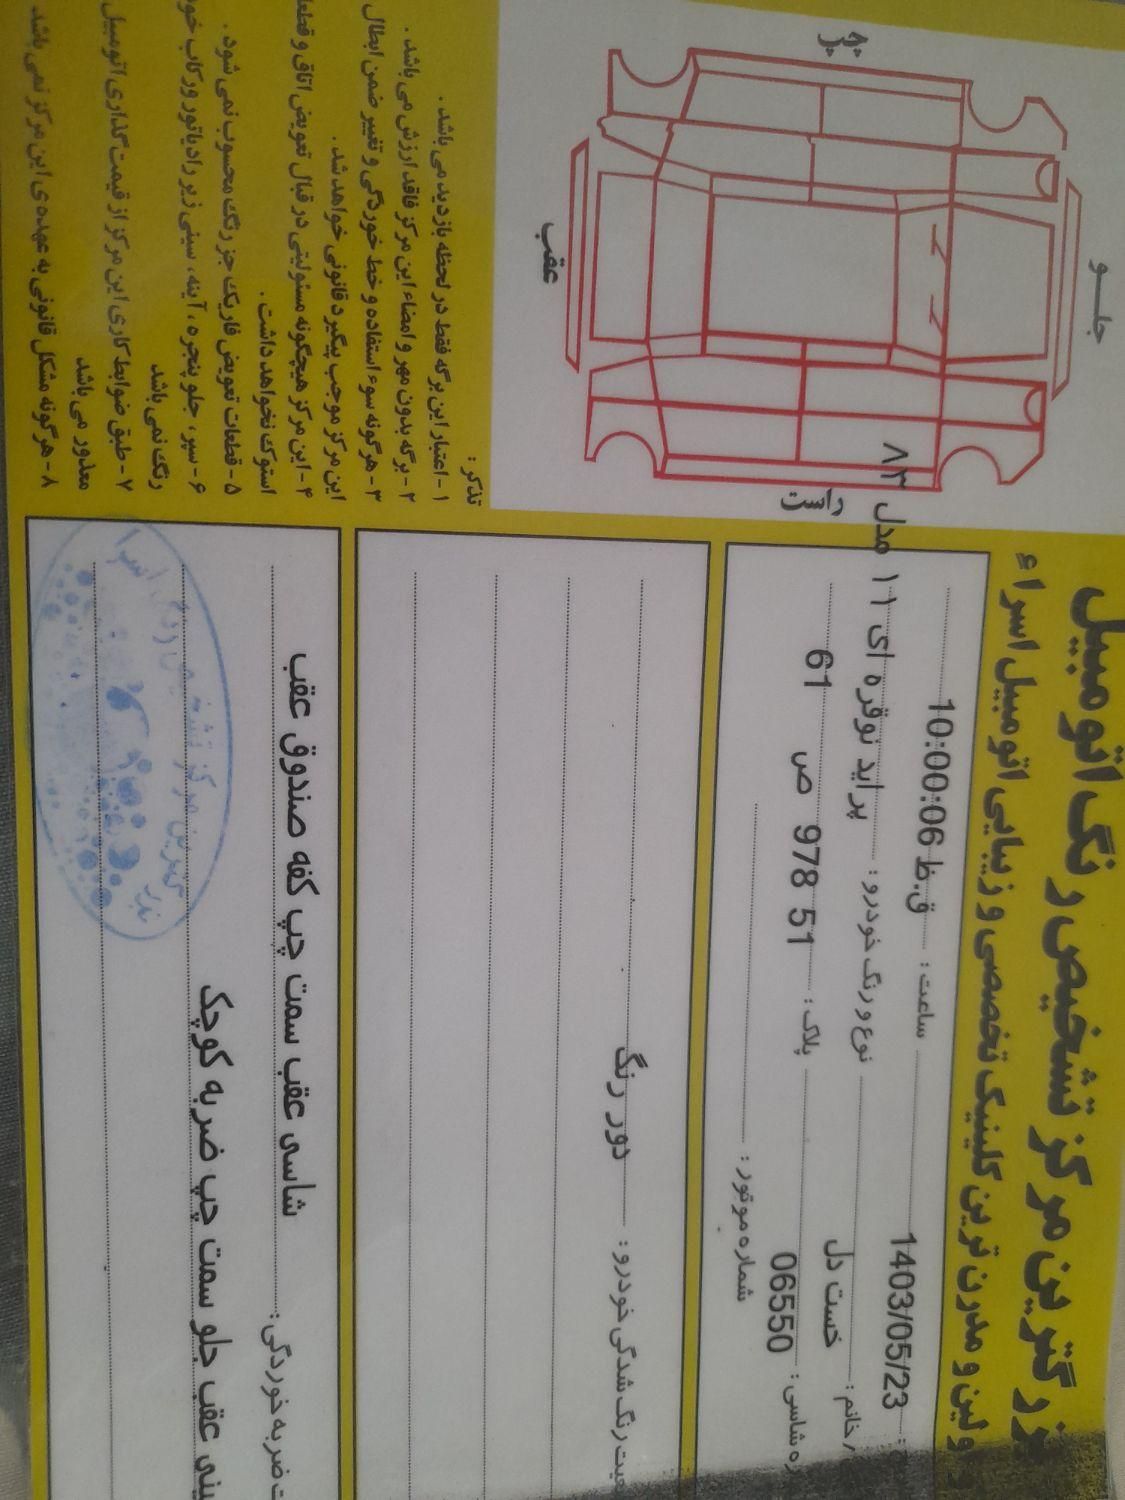 بزرگترین مرکز تشخیص رنگ اتومبیل
اولین و مدرن ترین کلینیک تخصصی و زیبایی اتومبیل اسراء
1403/05/23 ساعت : 10:00:06 ق.ظ
/ خانم : خست دل نوع و رنگ خودرو : پراید نوقره ای ۱۱ مدل ۸۳
ره شاسی : 06550 پلاک : 51 978 ص 61
شماره موتور :
وضعیت رنگ شدگی خودرو : دور رنگ
ت ضربه خوردگی : شاسی عقب سمت چپ کفه صندوق عقب
سینی عقب جلو سمت چپ ضربه کوچک
جلو
عقب
راست
چپ
تذکر :
۱- اعتبار این برگه فقط در لحظه بازدید می باشد .
۲- برگه بدون مهر و امضاء این مرکز فاقد ارزش می باشد .
۳- هرگونه سوء استفاده و خط خوردگی و تغییر ضمن ابطال
این مرکز موجب پیگیرد قانونی خواهد شد .
۴- این مرکز هیچگونه مسئولیتی در قبال تعویض اتاق و قطعا
استوک نخواهد داشت .
۵- قطعات تعویض فابریک جز رنگ محسوب نمی شود .
۶- سپر ، جلو پنجره ، آینه ، سینی زیر رادیاتور و رکاب خود
رنگ نمی باشد
۷- طبق ضوابط کاری این مرکز از قیمت گذاری اتومبیل
معذور می باشد
۸- هرگونه مشکل قانونی به عهده ی این مرکز نمی باشد